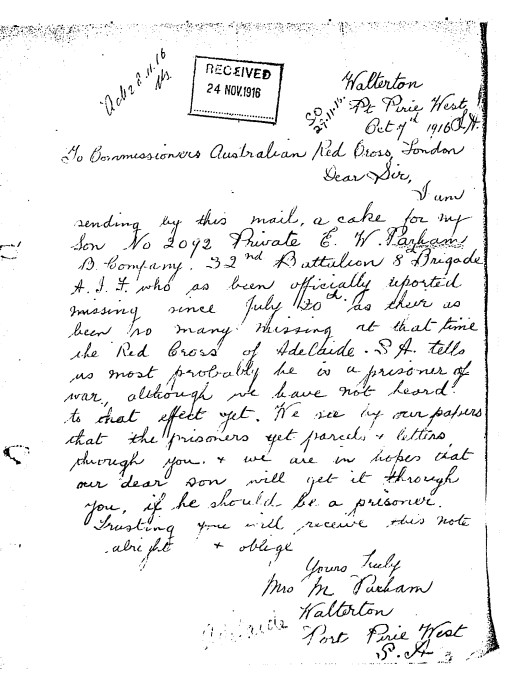 Ack 28.11.16
RECEIVED
24 NOV. 1916
27.11.16.
Walterton
Pt Pirie West,
Oct 7th 1916 S.A.
To Commissioners Australian Red Cross, London
Dear Sir,
I am
sending by this mail, a cake for my
Son No 2092 Private E. W. Parham
B. Company. 32nd Battalion 8th Brigade
A. I. F. who as been officially reported
missing since July 20th. as their as
been so many missing at that time
the Red Cross of Adelaide. S A. tells
us most probably he is a prisoner of
war, although we have not heard
to that effect yet. We see by our papers
that the prisoners get parcels & letters,
through you. & we are in hopes that
our dear son will get it through
you, if he should be a prisoner.
Trusting you will receive this note
alright & oblige
Yours Truly
Mrs M. Parham
Walterton
Port Pirie West
S. A
Adelaide